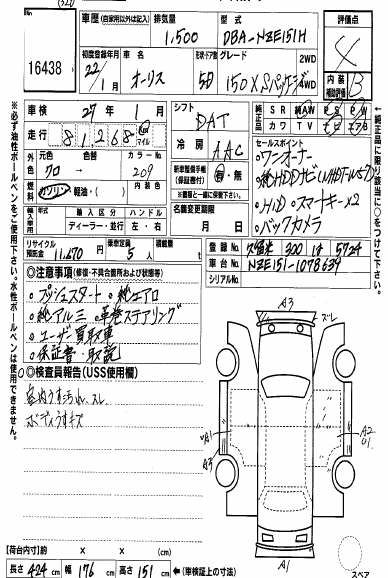 車歴 (自家用以外は記入)
排気量
型式
評価点
1,500
DBA-NZE151H
4
16438
初度登録年月
車名
形状・ドア数
グレード
2WD
4WD
22/1月
オーリス
5D
150X Sパッケージ
内装
補助評価
B
車検 24年 1月
シフト
純正品
SR
純AW
PS
PW
走行 81,268 km マイル
DAT
カワ
TV
ナビ
エアB
外色
元色
色替
カラーNo
セールスポイント
クロ
209
冷房
AAC
・ワンオーナー
燃料
ガソリン・軽油・( )
内装色
・純HDDナビ(NHDT-W57)
新車整備手帳
(保証書付)
有・無
・HID ・スマートキー×2
輸入車
輸入区分
ハンドル
ディーラー・並行
左・右
名義変更期限
月 日
・バックカメラ
リサイクル預託金 11,670円
乗車定員 5人
積載量 t
登録No. 久留米 300 5724
車台No. NZE151-1078639
シリアルNo.
◎注意事項(修復・不具合箇所および状態等)
・プッシュスタート ・純エアロ
・純アルミ ・革巻ステアリング
・ユーザー買取車
・保証書・取説
◎検査員報告(USS使用欄)
室内うす汚れ、スレ
ボディうすキズ
A3
スレ
A1
A3
A2
A1
【荷台内寸】約 × × cm
長さ 424 cm 幅 176 cm 高さ 151 cm ←(車検証上の寸法)
スペア
※必ず油性ボールペンをご使用下さい。水性ボールペンは使用できません。
純正品に限り該当に○をつけて下さい。